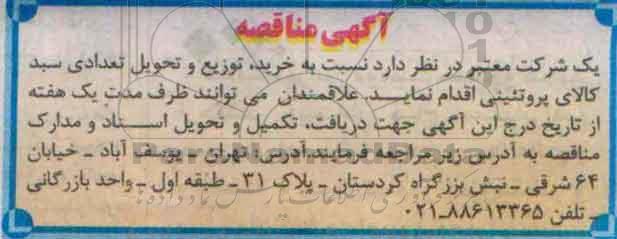 آگهی مناقصه
یک شرکت معتبر در نظر دارد نسبت به خرید، توزیع و تحویل تعدادی سبد
کالای پروتئینی اقدام نمایـــد. علاقمندان می توانند ظرف مدت یک هفته
از تاریخ درج این آگهی جهت دریافت، تکمیل و تحویل اســـناد و مدارک
مناقصه به آدرس زیر مراجعه فرمایند.آدرس: تهران ـ یوسف آباد ـ خیابان
۶۴ شرقی ـ نبش بزرگراه کردستان ـ پلاک ۳۱ ـ طبقه اول ـ واحد بازرگانی
ـ تلفن ۸۸۶۱۳۳۶۵ـ۰۲۱